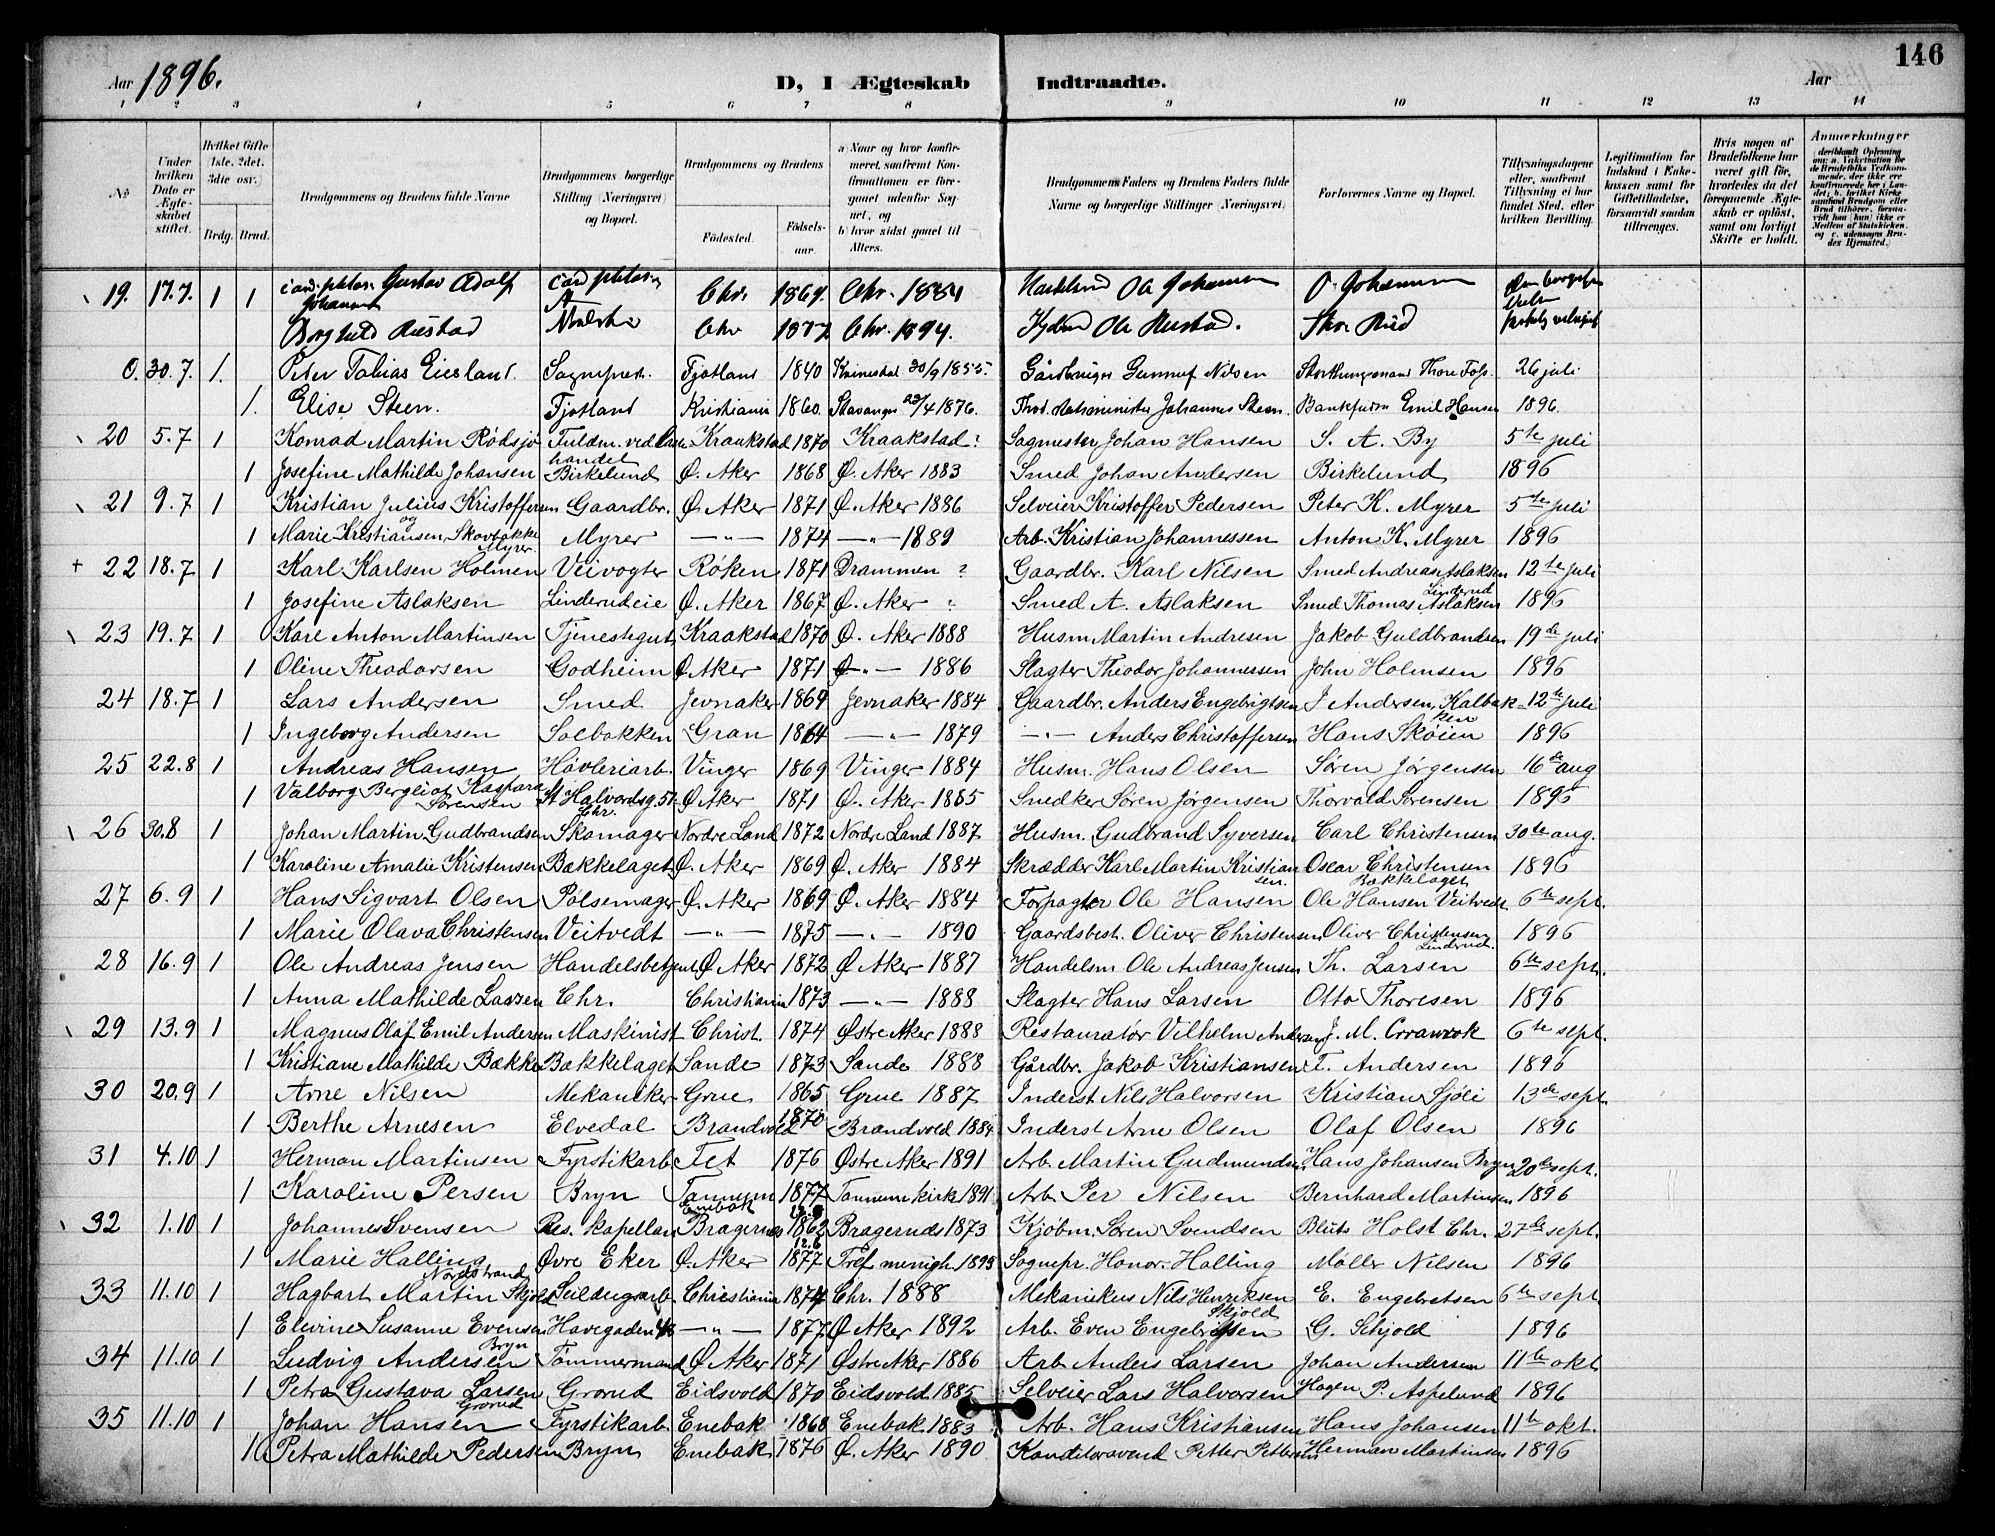 146
Aar 1896.
D, I Ægteskab Indtraadte.
Aar
1 2 3 4 5 6 7 8 9 10 11 12 13 14
No
Under hvilken Dato er Ægteskabet stiftet.
Hvilket Gifte (1ste, 2det, 3die osv.)
Brdg. Brud.
Brudgommens og Brudens fulde Navne
Brudgommens borgerlige Stilling (Næringsvei) og Bopæl.
Brudgommens og Brudens
Fødested. Fødselsaar.
a) Naar og hvor konfirmeret, saafremt Konfirmationen er foregaaet udenfor Sognet, og
b) hvor sidst gaaet til Alters.
Brudgommens Faders og Brudens Faders fulde Navne og borgerlige Stillinger (Næringsvei)
Forlovernes Navne og Bopæl.
Tillysningsdagene eller, saafremt Tillysning ei har fundet Sted, efter hvilken Bevilling.
Legitimation for Indskud i Enkekassen samt for Giftetilladelse, forsaavidt saadan tiltrænges.
Hvis nogen af Brudefolkene har været gift før, hvorledes da det foregaaende Ægteskab er opløst, samt om lovligt Skifte er holdt.
Anmærkninger
19. 17.7. 1 1 Gustav Adolf Chr. 1869 Chr. 1884 Ole Johannesen O. Johannesen
Borghild Rustad Chr 1872 Chr. 1894. Ole Rustad. Thor Ruud
0. 30.7. 1. Peter Tobias Eiesland. Sognepræst. Fjotland 1840 30/9 1855. Gunnuf Nilsen Storthingsmand Thore Foss. 26 juli
1. Elise Steen. Fjotland Kristiania 1860. Stavanger 23/4 1876. Johannes Steen. Emil Hansen 1896.
20 5.7 1 Konrad Martin Rødsjø Fuldm. ved Kraakstad 1870 Kraakstad? Sagmester Johan Hansen S. A. By 5te juli
handel
1 Josefine Mathilde Johansen Birkelund Ø. Aker 1868 Ø. Aker 1883 Smed Johan Andersen Birkelund 1896
21 9.7 1 Kristian Julius Kristoffersen Gaardbr. Ø. Aker 1871 Ø. Aker 1886 Selveier Kristoffer Pedersen Peter K. Myrer 5te juli
og
1 Marie Kristiansen, Skovbakke Myrer — " — 1874 — " — 1889 Arb. Kristian Johannessen Anton K. Myrer 1896
Myrer.
+ 22 18.7 1 Karl Karlsen Holmen Veivogter Røken 1871 Drammen ? Gaardbr. Karl Nilsen Smed Andreas Aslaksen 12te juli
Linderud
1 Josefine Aslaksen Linderudeie Ø. Aker 1867 Ø. Aker ? Smed A. Aslaksen Smed Thomas Aslaksen 1896
23 19.7 1 Kare Anton Martinsen Tjenestegut, Kraakstad 1870 Ø. Aker 1888 Husm. Martin Andresen Jakob Guldbrandsen 19de juli
1 Oline Theodorsen Godheim Ø. Aker 1871 — " — 1886 Slagter Theodor Johannessen John Holmsen 1896
24 18.7 1 Lars Andersen Smed Jevnaker 1869 Jevnaker 1884 Gaardbr. Anders Engebrigtsen J Andersen, Kalbak- 12te juli
ken
1 Ingeborg Andersen Solbakken Gran 1864 — " — 1879 — " — Anders Christoffersen Hans Skøien 1896
25 22.8 1 Andreas Hansen Høvleriarb. Vinger 1869 Vinger 1884 Husm. Hans Olsen Søren Jørgensen 16de aug
1 Valborg Bergliot Kaspara St Halvordsg. 51 Ø. Aker 1871 Ø. Aker 1885 Snedker Søren Jørgensen Thorvald Sørensen 1896
Sørensen Chr.
26 30.8 1 Johan Martin Gudbrandsen Skomager Nordre Land 1872 Nordre Land 1887 Husm. Gudbrand Syversen Carl Christensen 30te aug.
1 Karoline Amalie Kristensen Bækkelaget Ø. Aker 1869 Ø. Aker 1884 Skrædder Karl Martin Kristian Oscar Christensen 1896
sen. Bækkelaget
27 6.9 1 Hans Sigvart Olsen Pølsemager Ø. Aker 1869 Ø. Aker 1884 Forpagter Ole Hansen Ole Hansen Veitvedt 6te sept.
1 Marie Olava Christensen Veitvedt — " — 1875 — " — 1890 Gaardsbest. Oliver Christensen Oliver Christensen 1896
Linderud.
28 16.9 1 Ole Andreas Jensen Handelsbetjent Ø Aker 1872 Ø Aker 1887 Handelsm. Ole Andreas Jensen Th. Larsen 6te sept.
1 Anna Mathilde Larsen Chr. Christiania 1873 — " — 1888 Slagter Hans Larsen Otto Thoresen 1896
29 13.9 1 Magnus Olaf Emil Andersen Maskinist Christ. 1874 Østre Aker 1888 Restauratør Vilhelm Andersen J. M. 6te sept.
1 Kristiane Mathilde Bække Bækkelaget Sande 1873 Sande 1888 Gårdbr. Jakob Kristiansen T. Andersen 1896
30 20.9 1 Arne Nilsen Mekaniker Grue 1865 Grue 1887 Inderst Nils Halvorsen Kristian Sjøli 13de sept.
1 Berthe Arnesen Elvedal Brandvold 1870 Brandvold 1884 Inderst Arne Olsen Olaf Olsen 1896
31 4.10 1 Herman Martinsen Fyrstikarb Fet 1876 Østre Aker 1891 Arb. Martin Gudmundsen Hans Johansen Bryn 20de sept.
1 Karoline Persen Bryn 1877 1891 Arb. Per Nilsen Bernhard Martinsen 1896
Enebak 12.8
32 1.10 1 Johannes Svensen Res. kapellan Bragernes 1862 Bragernes 1873 Kjøbm. Søren Svendsen Holst Chr. 27de sept.
12.6
1 Marie Halling Øvre Eker Ø. Aker 1877 Tref. menigh. 1893 Sognepr. Honor. Halling Møller Nilsen 1896
Nordstrand
33 11.10 1 Hagbart Martin Skjold Seildugsarb. Christiania 1874 Chr. 1888 Mekanikus Nils Henriksen E. Engebretsen 6te sept.
Skjold
1 Elevine Susanne Evensen Havegaden — " — 1877 Ø Aker 1892 Arb. Even Engebrigtsen G. Schjold 1896
Bryn
34 11.10 1 Ludvig Andersen Tømmermand Ø Aker 1871 Østre Aker 1886 Arb Anders Larsen Johan Andersen 11te okt.
1 Petra Gustava Larsen Grorud Eidsvold 1870 Eidsvold 1885 Selveier Lars Halvorsen Hagen P. Aspelund 1896
Grorud
35 11.10 1 Johan Hansen Fyrstikarb. Enebak 1868 Enebak 1883 Arb. Hans Kristiansen Hans Johansen 11te okt.
1 Petra Mathilde Pedersen Bryn Enebak 1876 Ø. Aker 1890 Petter Pettersen Herman Martinsen 1896